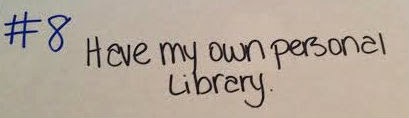 #8 Have my own personal
Library.